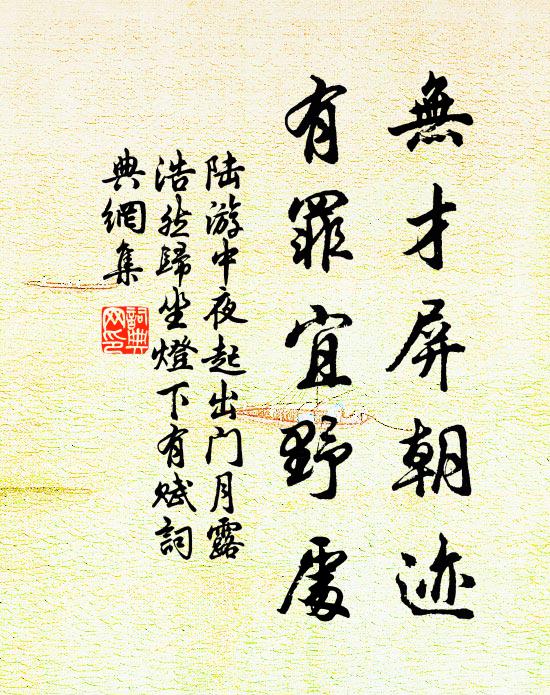 無才屏朝迹
有罪宜野處
陆游中夜起出门月露
浩然歸坐燈下有赋詞
典網集
詞典
网印